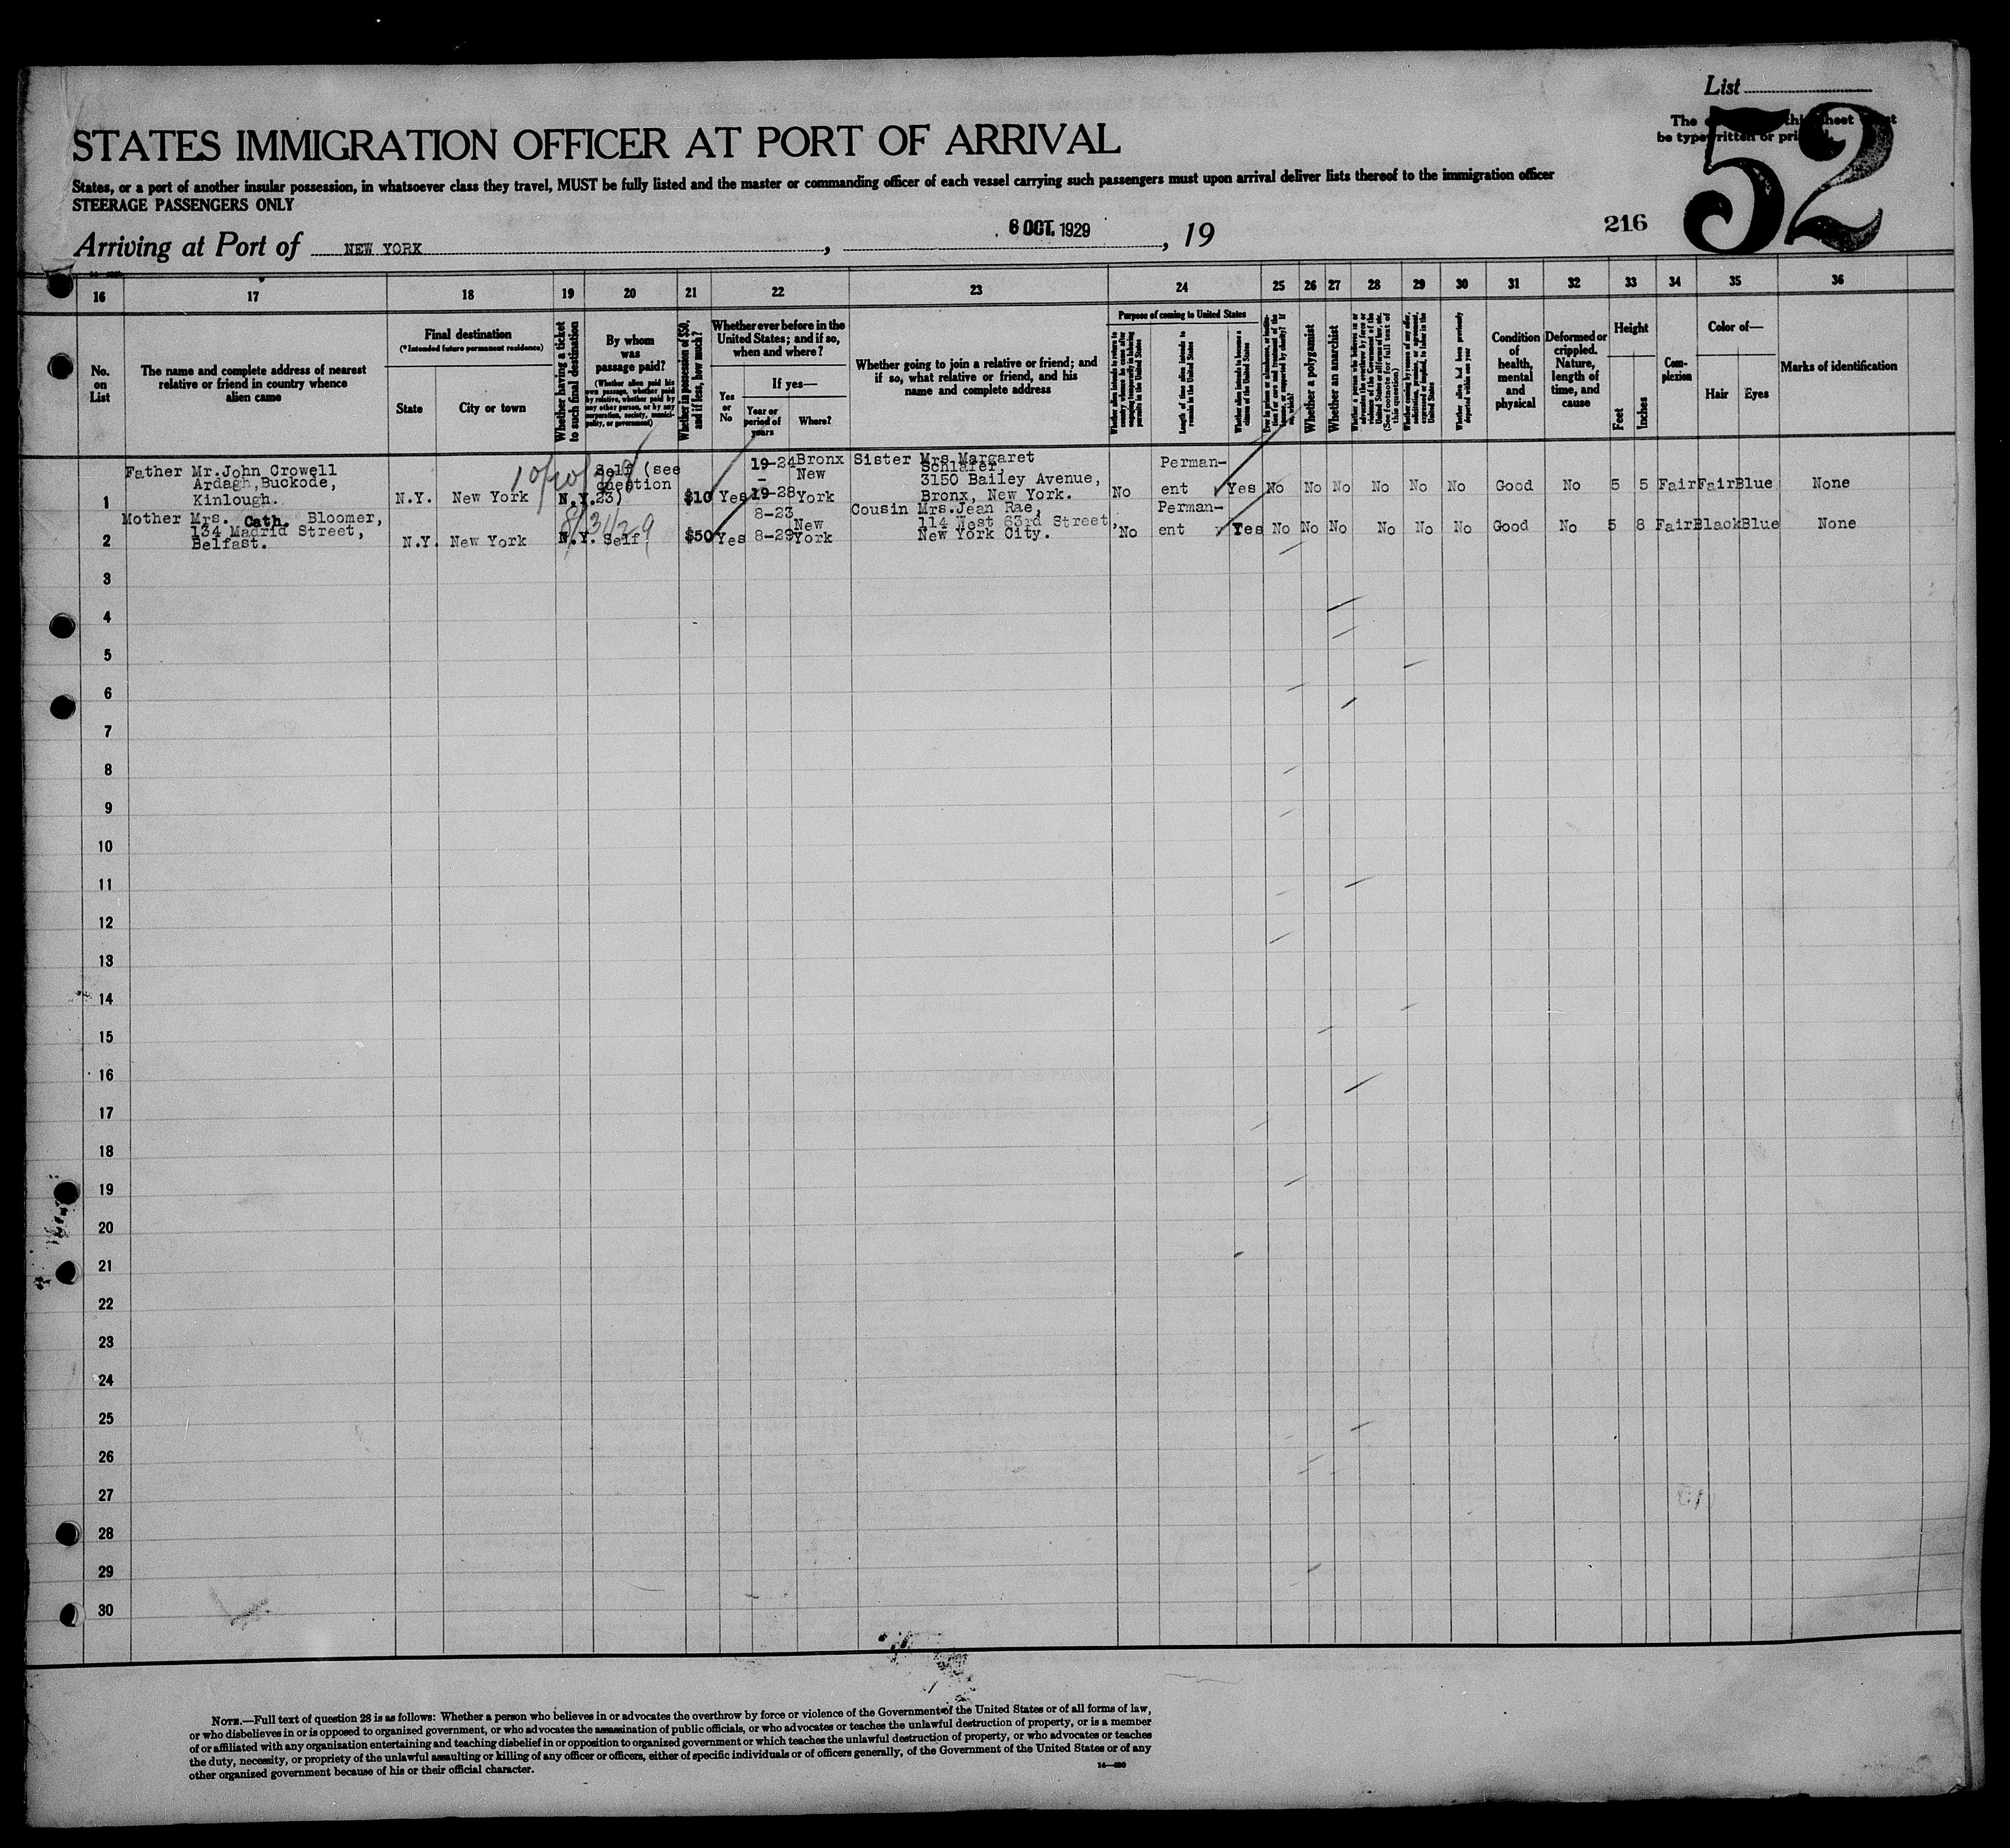 List
The
be typewritten or
52
STATES IMMIGRATION OFFICER AT PORT OF ARRIVAL
States, or a port of another insular possession, in whatsoever class they travel, MUST be fully listed and the master or commanding officer of each vessel carrying such passengers must upon arrival deliver lists thereof to the immigration officer
STEERAGE PASSENGERS ONLY
216
Arriving at Port of NEW YORK, 6 OCT. 1929, 19
16 17 18 19 20 21 22 23 24 25 26 27 28 29 30 31 32 33 34 35 36
No. on List
The name and complete address of nearest relative or friend in country whence alien came
Final destination
(*Intended future permanent residence)
State
City or town
Whether having a ticket to such final destination
By whom was passage paid?
(Whether alien paid his own passage, whether paid by relative, whether paid by any other person, or by any corporation, society, municipality, or government)
Whether in possession of $50, and if less, how much?
Whether ever before in the United States; and if so, when and where?
Yes or No
If yes—
Year or period of years
Where?
Whether going to join a relative or friend; and if so, what relative or friend, and his name and complete address
Purpose of coming to United States
Length of time alien intends to remain in the United States
Whether alien intends to become a citizen of the United States
Whether a polygamist
Whether an anarchist
(See footnote for full text of this question)
Whether alien had been previously deported within one year
Condition of health, mental and physical
Deformed or crippled. Nature, length of time, and cause
Height
Feet
Inches
Complexion
Color of—
Hair
Eyes
Marks of identification
1 Father Mr.John Crowell Ardagh,Buckode, Kinlough. N.Y. New York N.Y. Self (see question 23) $10 Yes 19-24 - 19-28 Bronx New York Sister Mrs.Margaret Schlafer, 3150 Bailey Avenue, Bronx, New York. No Permanent Yes No No No No No No Good No 5 5 Fair Fair Blue None
2 Mother Mrs. Cath. Bloomer, 134 Madrid Street, Belfast. N.Y. New York N.Y. Self $50 Yes 8-23 8-29 New York Cousin Mrs.Jean Rae, 114 West 63rd Street, New York City. No Permanent Yes No No No No No No Good No 5 8 Fair Black Blue None
8/31/29
3
4
5
6
7
8
9
10
11
12
13
14
15
16
17
18
19
20
21
22
23
24
25
26
27
28
29
30
NOTE.—Full text of question 28 is as follows: Whether a person who believes in or advocates the overthrow by force or violence of the Government of the United States or of all forms of law,
or who disbelieves in or is opposed to organized government, or who advocates the assassination of public officials, or who advocates or teaches the unlawful destruction of property, or is a member
of or affiliated with any organization entertaining and teaching disbelief in or opposition to organized government or which teaches the unlawful destruction of property, or who advocates or teaches
the duty, necessity, or propriety of the unlawful assaulting or killing of any officer or officers, either of specific individuals or of officers generally, of the Government of the United States or of any
other organized government because of his or their official character.
14—480